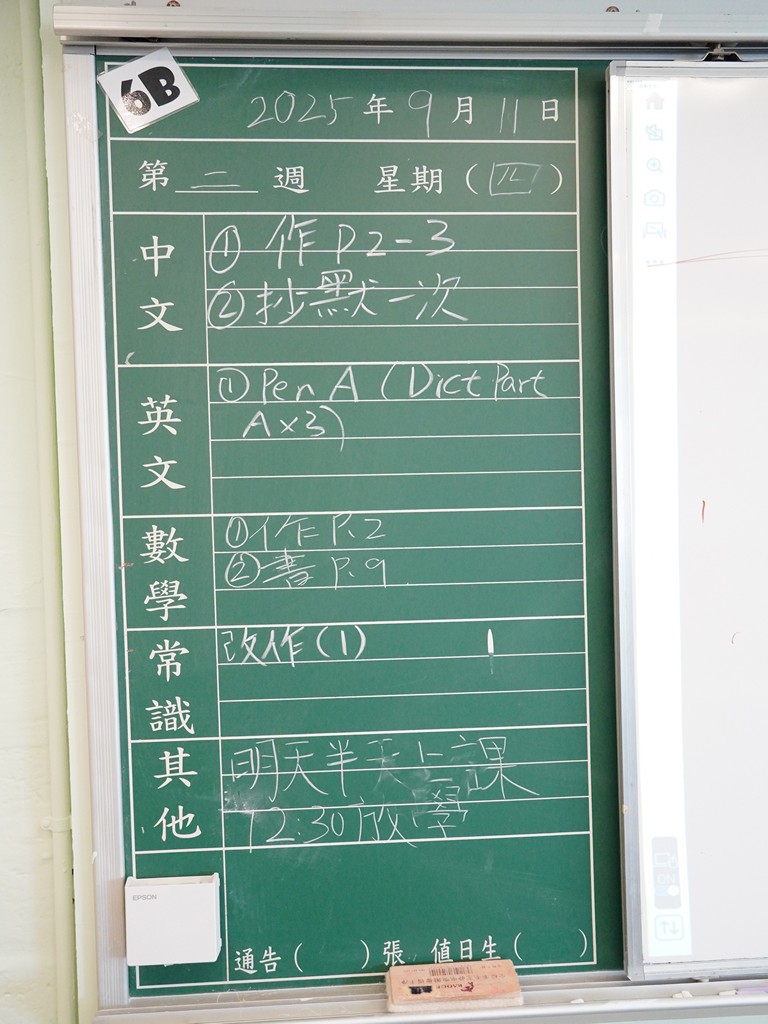 6B
2025年9月11日
第二週 星期(四)
中文
①作P2-3
②抄默一次
英文
①Pen A (Dict Part
A×3)
數學
①作P.2
②書P.9
常識
改作(1)
其他
明天半天上課
12:30放學
EPSON
通告( )張 值日生( )